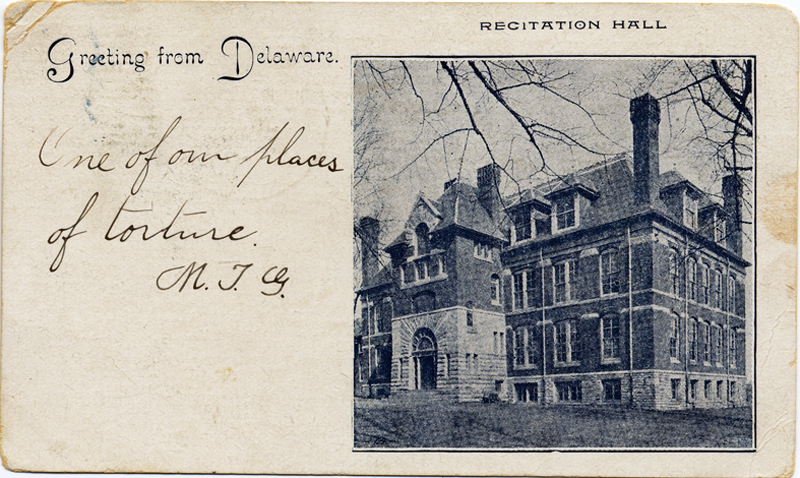 RECITATION HALL
Greeting from Delaware.
One of our places
of torture.
M. T. G.